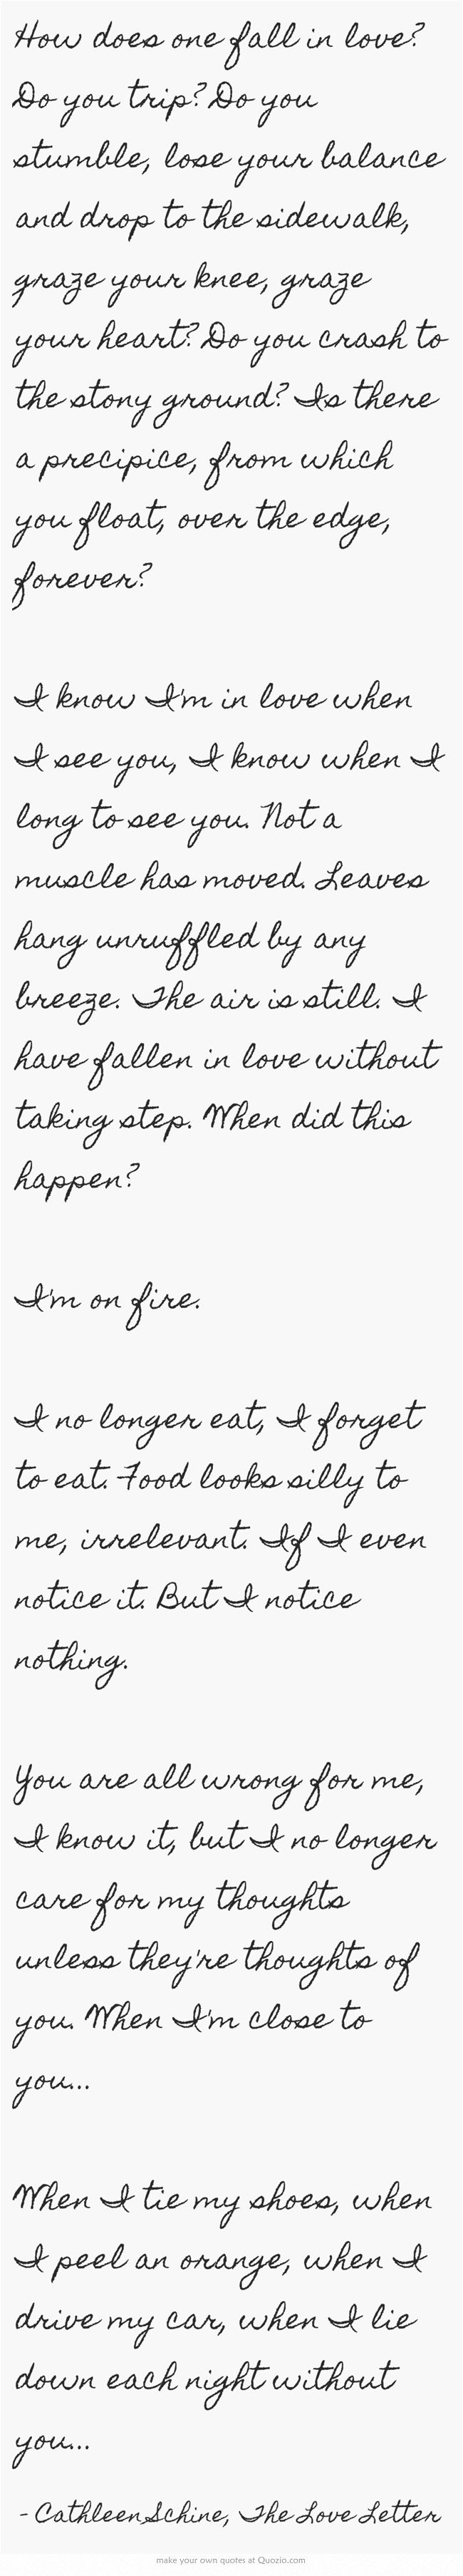 How does one fall in love?
Do you trip? Do you
stumble, lose your balance
and drop to the sidewalk,
graze your knee, graze
your heart? Do you crash to
the stony ground? Is there
a precipice, from which
you float, over the edge,
forever?
I know I'm in love when
I see you, I know when I
long to see you. Not a
muscle has moved. Leaves
hang unruffled by any
breeze. The air is still. I
have fallen in love without
taking step. When did this
happen?
I'm on fire.
I no longer eat, I forget
to eat. Food looks silly to
me, irrelevant. If I even
notice it. But I notice
nothing.
You are all wrong for me,
I know it, but I no longer
care for my thoughts
unless they're thoughts of
you. When I'm close to
you...
When I tie my shoes, when
I peel an orange, when I
drive my car, when I lie
down each night without
you...
- Cathleen Schine, The Love Letter
make your own quotes at Quozio.com